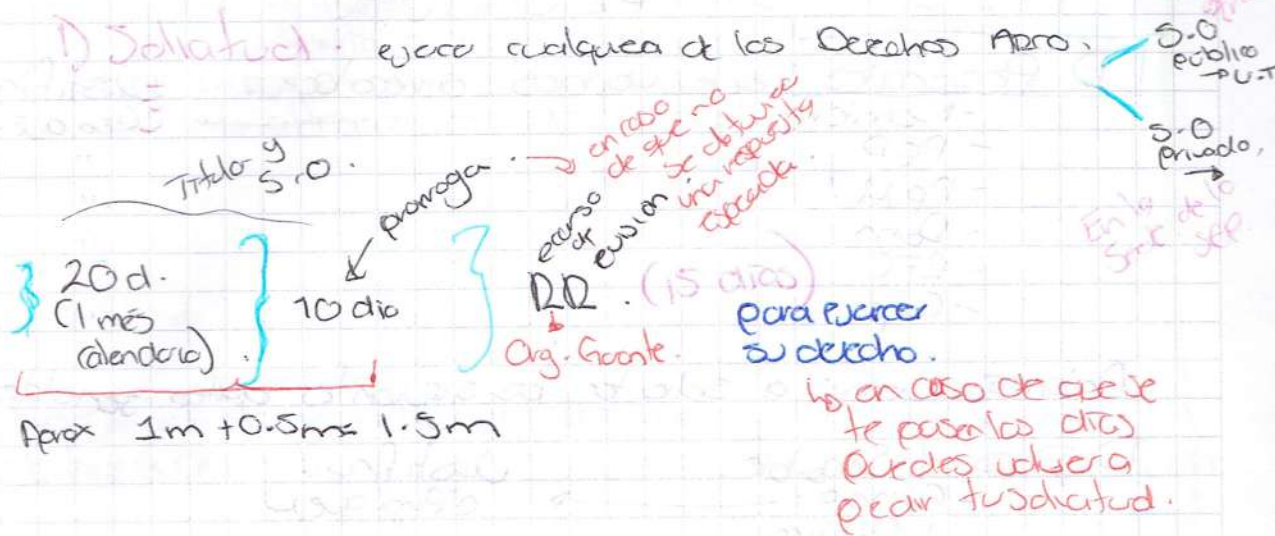 1) Solicitud. ejerce cualquiera de los Derechos ARCO.
S.O
público
→ U.T
S.O
Privado,
→
En la
de lo
SFP.
Titular y
S.O.
prorroga.
→ en caso
de que no
se obtuvo
una respuesta
esperada.
20 d.
(1 més
Calendario).
10 dia
recurso
de
revisión.
RR. (15 dias)
Org. Garante.
para ejercer
su derecho.
↳ en caso de que se
te pasen los días
puedes volver a
pedir tu solicitud.
Aprox 1m + 0.5m = 1.5m